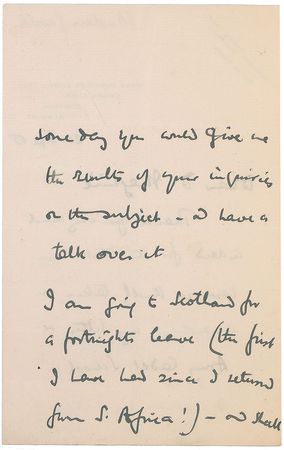 some day you would give me
the results of your inquiries
on the subject - & have a
talk over it
I am going to Scotland for
a fortnights leave (the first
I have had since I returned
from S. Africa!) - & shall